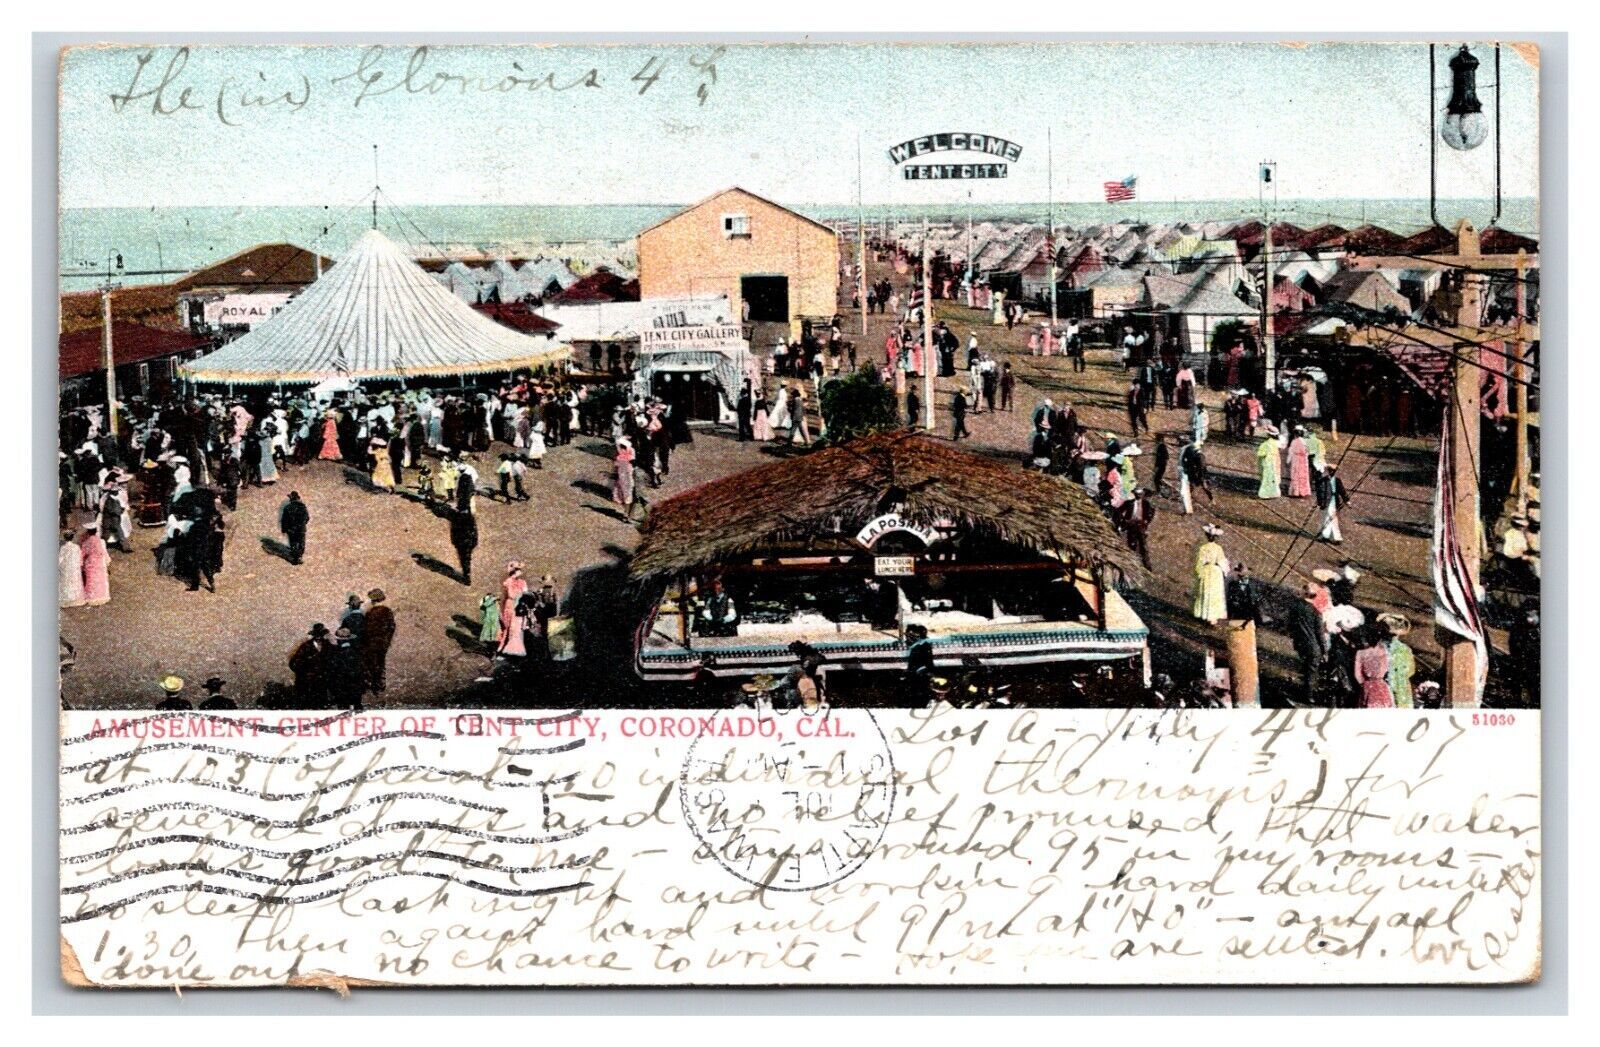 The (in) Glorious 4th
WELCOME
TENT CITY
ROYAL
TENT CITY GALLERY
PICTURES
LA POSADA
EAT YOUR
LUNCH HERE
AMUSEMENT CENTER OF TENT CITY, CORONADO, CAL.
51030
SEATTLE WASH
Los A - July 4th - 07
at 103 (official - no individual thermom's) for
several days and no relief promised, that water
looks good to me - stays around 95 in my rooms -
no sleep last night and working hard daily until
1.30, then again hard until 9 P m at "Ho" - am all
done out - no chance to write - Hope you are settled. love